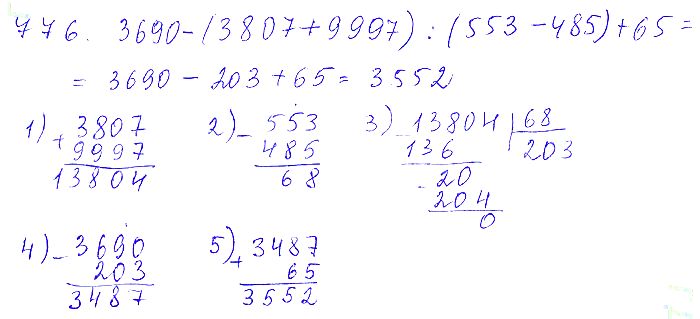 776. 3690-(3807+9997):(553-485)+65=
= 3690 - 203 + 65 = 3552
1) + 3807
9997
13804
2) - 553
485
68
3) - 13804 | 68
136 203
- 20
204
0
4) - 3690
203
3487
5) + 3487
65
3552